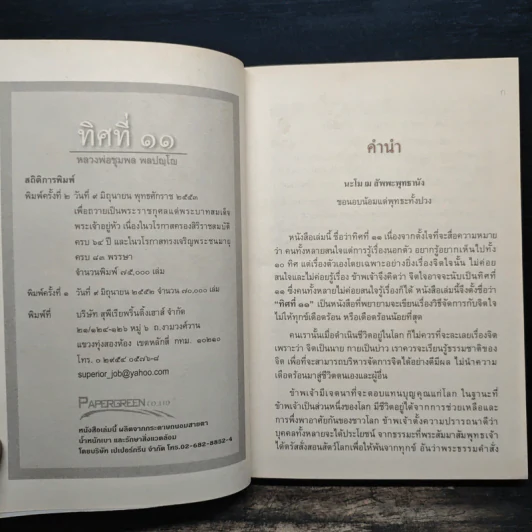 ทิศที่ ๑๑
หลวงพ่อชุมพล พลปญฺโญ
สถิติการพิมพ์
พิมพ์ครั้งที่ ๒ วันที่ ๙ มิถุนายน พุทธศักราช ๒๕๕๓
เพื่อถวายเป็นพระราชกุศลแด่พระบาทสมเด็จ
พระเจ้าอยู่หัว เนื่องในวโรกาสครองสิริราชสมบัติ
ครบ ๖๔ ปี และในวโรกาสทรงเจริญพระชนมายุ
ครบ ๘๓ พรรษา
จำนวนพิมพ์ ๗๕,๐๐๐ เล่ม
พิมพ์ครั้งที่ ๑ วันที่ ๙ มิถุนายน ๒๕๕๒ จำนวน ๗๐,๐๐๐ เล่ม
พิมพ์ที่ บริษัท สุพีเรียพริ้นติ้งเฮาส์ จำกัด
๒๘/๑๒๔-๑๒๖ หมู่ ๖ ถ.งามวงศ์วาน
แขวงทุ่งสองห้อง เขตหลักสี่ กทม. ๑๐๒๑๐
โทร. ๐ ๒๙๕๔ ๐๕๗๖-๘
superior_job@yahoo.com
PAPERGREEN CO.,LTD
หนังสือเล่มนี้ ผลิตจากกระดาษถนอมสายตา
น้ำหนักเบา และรักษาสิ่งแวดล้อม
โดยบริษัท เปเปอร์กรีน จำกัด โทร.02-682-9852-4
คำนำ
นะโม ฌ อัพพะพุทธานัง
ขอนอบน้อมแด่พุทธะทั้งปวง
หนังสือเล่มนี้ ชื่อว่าทิศที่ ๑๑ เนื่องจากตั้งใจที่จะสื่อความหมาย
ว่า คนทั้งหลายสนใจแต่การรู้เรื่องนอกตัว อยากรู้อยากเห็นไปทั้ง
๑๐ ทิศ แต่เรื่องตัวเองโดยเฉพาะอย่างยิ่งเรื่องจิตใจนั้น ไม่ค่อย
สนใจและไม่ค่อยรู้เรื่อง ข้าพเจ้าจึงคิดว่า จิตใจอาจจะนับเป็นทิศที่
๑๑ ซึ่งคนทั้งหลายไม่ค่อยสนใจรู้ก็ได้ หนังสือเล่มนี้จึงตั้งชื่อว่า
“ทิศที่ ๑๑” เป็นหนังสือที่พยายามจะเขียนเรื่องวิธีจัดการกับจิตใจ
ไม่ให้ทุกข์เดือดร้อน หรือเดือดร้อนน้อยที่สุด
คนเรานั้นเมื่อดำเนินชีวิตอยู่ในโลก ก็ไม่ควรที่จะละเลยเรื่องจิต
เพราะว่า จิตเป็นนาย กายเป็นบ่าว เราควรจะเรียนรู้ธรรมชาติของ
จิต เพื่อที่จะสามารถบริหารจัดการจิตได้อย่างดีมีผล ไม่นำความ
เดือดร้อนมาสู่ชีวิตตนเองและผู้อื่น
ข้าพเจ้ามีเจตนาที่จะตอบแทนบุญคุณแก่โลก ในฐานะที่
ข้าพเจ้าเป็นส่วนหนึ่งของโลก มีชีวิตอยู่ได้จากการช่วยเหลือและ
การพึ่งพาอาศัยกันของชาวโลก ข้าพเจ้าตั้งความปรารถนาดีว่า
บุคคลทั้งหลายจะได้ประโยชน์ จากธรรมะที่พระสัมมาสัมพุทธเจ้า
ได้ตรัสสั่งสอนสัตว์โลกเพื่อให้พ้นจากทุกข์ อันว่าพระธรรมคำสั่ง